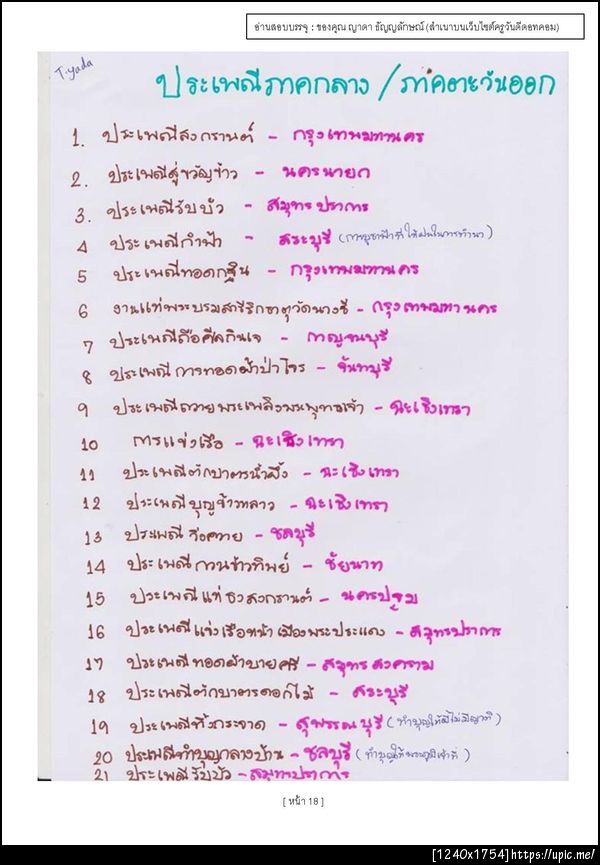 อ่านสอบบรรจุ : ของคุณ ญาดา ธัญญลักษณ์ (สำเนาบนเว็บไซต์ครูวันดีดอทคอม)
T.yada
ประเพณีภาคกลาง / ภาคตะวันออก
1. ประเพณีสงกรานต์ - กรุงเทพมหานคร
2. ประเพณีสู่ขวัญข้าว - นครนายก
3. ประเพณีรับบัว - สมุทรปราการ
4 ประเพณีกำฟ้า - สระบุรี (การบูชาฟ้าที่ให้ฝนในการทำนา)
5 ประเพณีทอดกฐิน - กรุงเทพมหานคร
6 งานแห่พระบรมสารีริกธาตุวัดนางชี - กรุงเทพมหานคร
7 ประเพณีถือศีลกินเจ - กาญจนบุรี
8 ประเพณีการทอดผ้าป่าโจร - จันทบุรี
9 ประเพณีถวายพระเพลิงพระพุทธเจ้า - ฉะเชิงเทรา
10 การแข่งเรือ - ฉะเชิงเทรา
11 ประเพณีตักบาตรน้ำผึ้ง - ฉะเชิงเทรา
12 ประเพณีบุญข้าวหลาม - ฉะเชิงเทรา
13 ประเพณีวิ่งควาย - ชลบุรี
14 ประเพณีกวนข้าวทิพย์ - ชัยนาท
15 ประเพณีแห่ธงสงกรานต์ - นครปฐม
16 ประเพณีแข่งเรือหน้าเมืองพระประแดง - สมุทรปราการ
17 ประเพณีทอดผ้าบายศรี - สมุทรสงคราม
18 ประเพณีตักบาตรดอกไม้ - สระบุรี
19 ประเพณีทิ้งกระจาด - สุพรรณบุรี (ทำบุญให้ผีไม่มีญาติ)
20 ประเพณีทำบุญกลางบ้าน - ชลบุรี (ทำบุญให้พระภูมิเจ้าที่)
21 ประเพณีรับบัว - สมุทรปราการ
[ หน้า 18 ]
[1240x1754]https://upic.me/